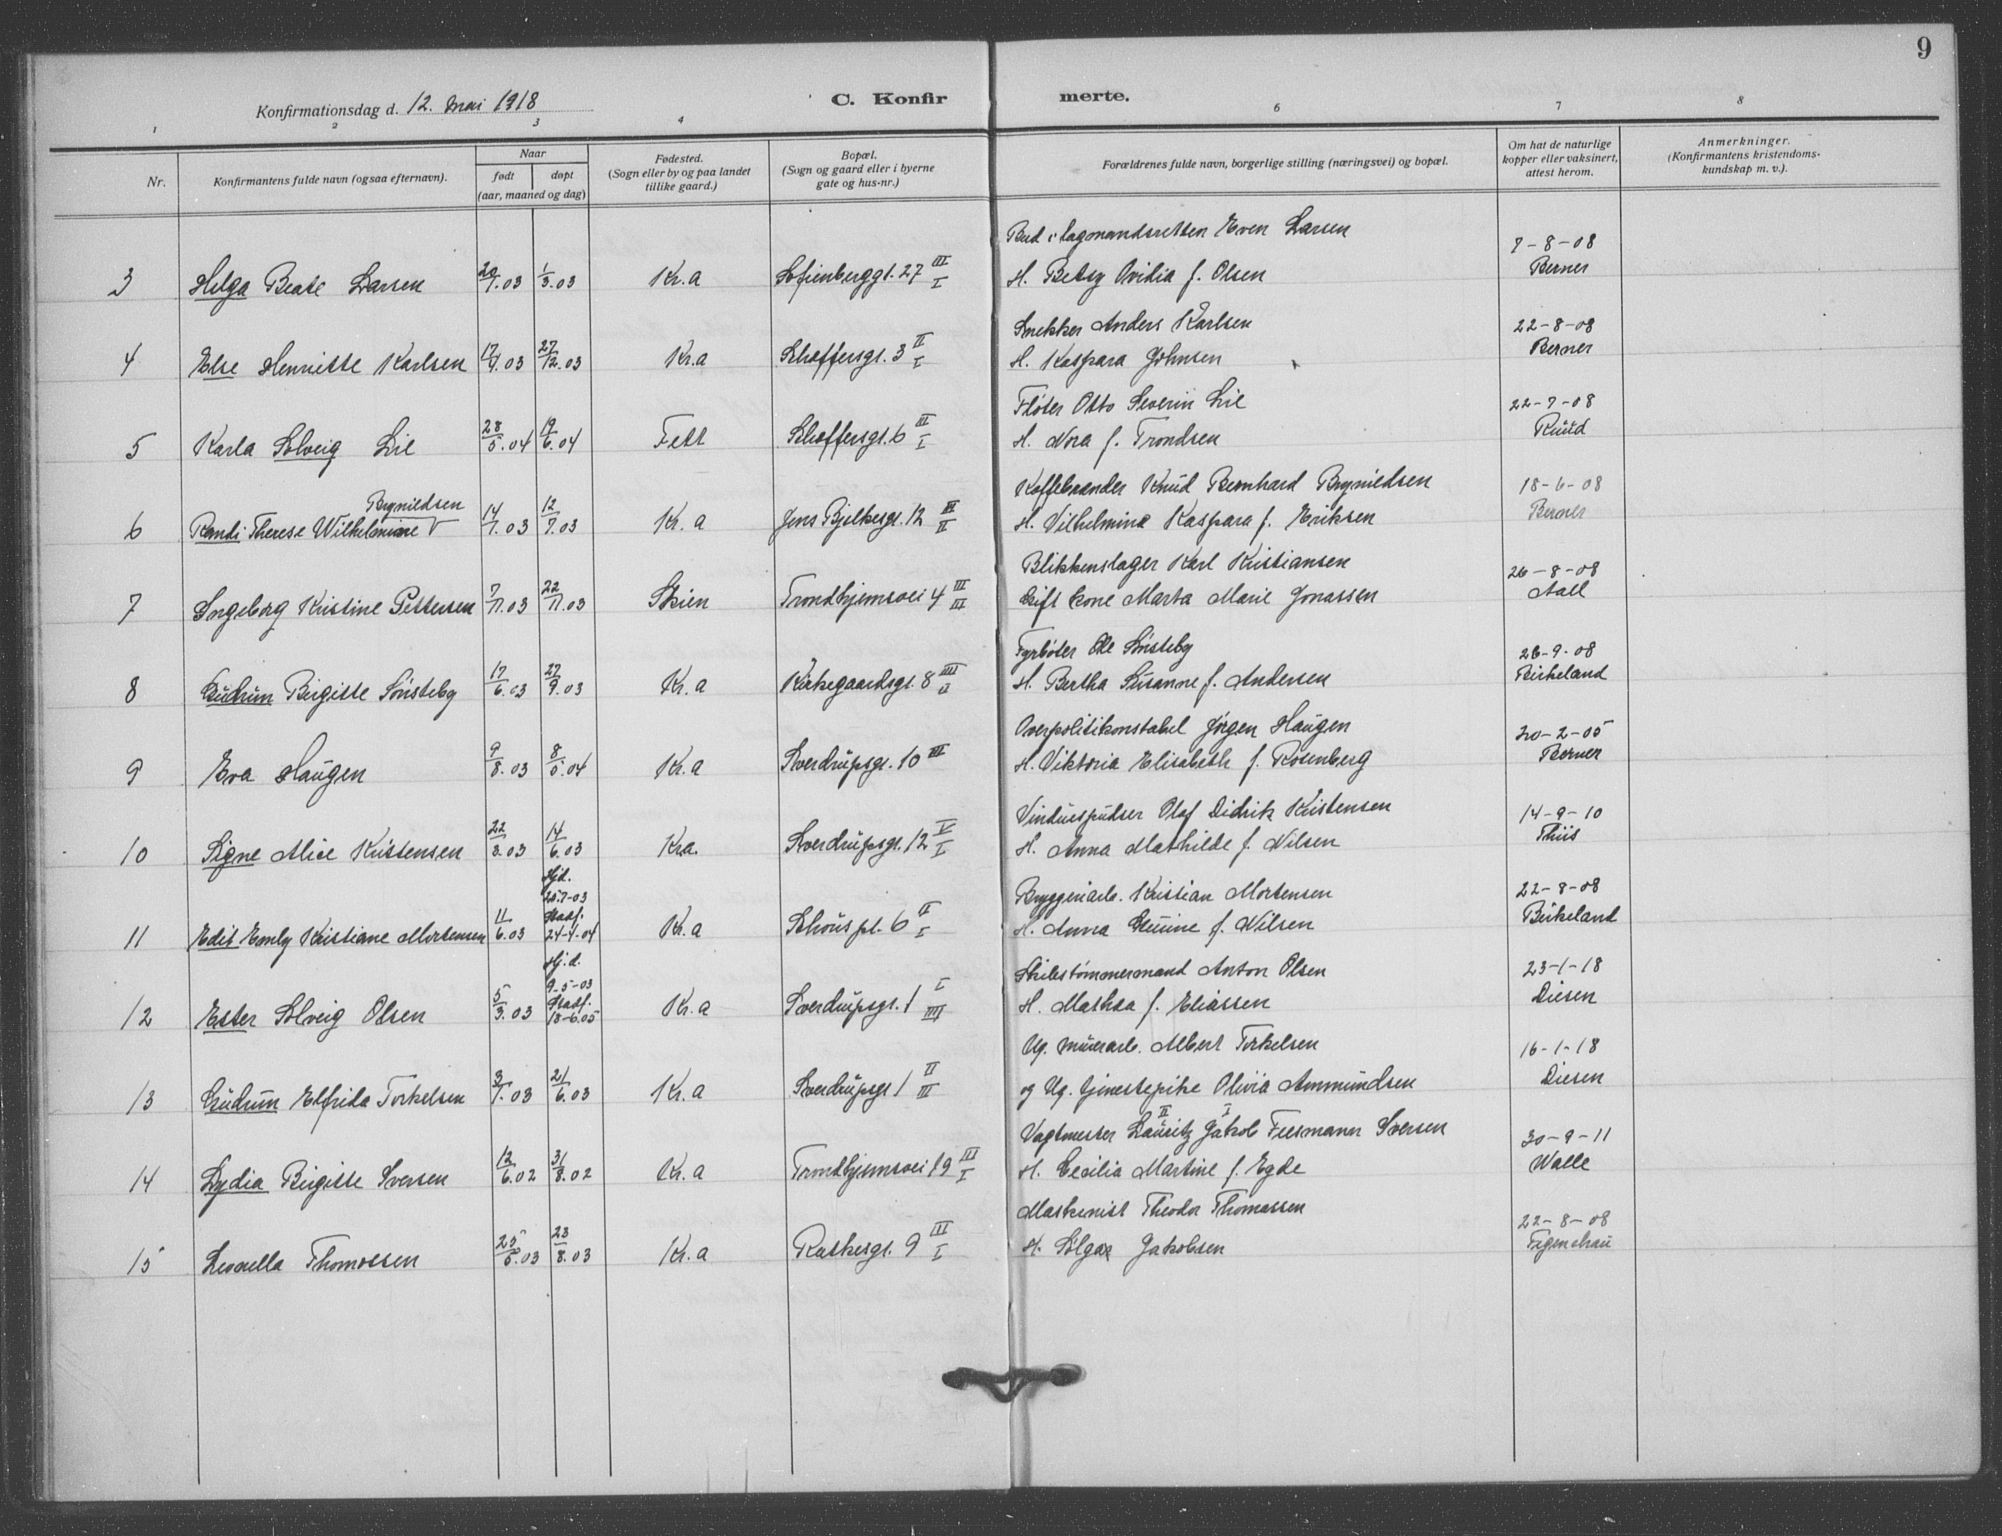 9
Konfirmationsdag d. 12. mai 1918
C. Konfirmerte.
1 2 3 4 6 7 8
Nr.
Konfirmantens fulde navn (ogsaa efternavn).
Naar
født døpt
(aar, maaned og dag)
Fødested.
(Sogn eller by og paa landet
tillike gaard.)
Bopæl.
(Sogn og gaard eller i byerne
gate og hus-nr.)
Forældrenes fulde navn, borgerlige stilling (næringsvei) og bopæl.
Om hat de naturlige
kopper eller vaksinert,
attest herom.
Anmerkninger.
(Konfirmantens kristendoms-
kundskap m. v.).
Bud i lagmandsretten Even Larsen 7-8-08
3 Helga Beate Larsen 20/1.03 1/3.03 Kr.a Sofienberggt. 27 III/I H. Betsy Ovidia f. Olsen Berner
Snekker Anders Karlsen 22-8-08
4 Else Henriette Karlsen 17/9.03 27/12.03 Kr.a Schæffersgt. 3 II/I H. Kaspara Johnsen Berner
Fløter Otto Severin Lie 22-7-08
5 Karla Solveig Lie 28/5.04 19/6.04 Fett Schæffersgt. 6 III/I H. Nora f. Trondsen Ruud
Brynildsen Kaffebrænder Knud Bernhard Brynildsen 18-6-08
6 Randi Therese Wilhelmine V 14/1.03 12/7.03 Kr.a Jens Bjelkesgt. 12 III/II H. Vilhelmine Kaspara f. Eriksen Berner
Blikkenslager Karl Kristiansen 26-8-08
7 Ingeborg Kristine Pettersen 7/7.03 22/11.03 Skien Trondhjemsvei 4 III/III Gift kone Marta Marie Jonassen Aall
Fyrbøter Ole Sønsteby 26-9-08
8 Gudrun Birgitte Sønsteby 17/6.03 27/9.03 Kr.a Kirkegaardsgt. 8 III/II H. Bertha Susanne f. Andersen Birkeland
Overpolitikonstabel Jørgen Haugen 20-2-05
9 Eva Haugen 9/8.03 8/5.04 Kr.a Sverdrupsgt. 10 III H. Viktoria Elisabeth f. Rosenberg Berner
Vinduespudser Olaf Didrik Kristensen 14-9-10
10 Signe Alice Kristensen 22/3.03 14/6.03 Kr.a. Sverdrupsgt. 12 V/I H. Anna Mathilde f. Nilsen Thiis
Hjd.
20-7-03
Stadf. Bryggeriarb. Kristian Mortensen 22-8-08
11 Edit Emly Kristiane Mortensen 11/6.03 24-4-04 Kr.a Schouspl. 6 II/I H. Anna Gurine f. Nilsen Birkeland
Hj.d.
9-5-03
Stadf. Skibstømmermand Anton Olsen 23-1-18
12 Ester Solveig Olsen 5/3.03 18-6.05 Kr.a Sverdrupsgt. 1 I/III H. Mathea f. Eliassen Diesen
Ug. murerarb. Albert Torkelsen 16-1-18
13 Gudrun Elfrida Torkelsen 3/1.03 21/6.03 Kr.a Sverdrupsgt 1 II/III og Ug. tjenestepike Olivia Ammundsen Diesen
II I
Vagtmester Lauritz Jakob Feesmann Iversen 30-9-11
14 Lydia Birgitte Iversen 12/6.02 31/8.02 Kr.a Trondhjemsvei 19 III/I H. Cecilia Martine f. Egde Walle
Maskinist Theodor Thomassen 22-8-08
15 Leonella Thomassen 25/5.03 23/8.03 Kr.a Rathkesgt. 9 III/I H. Solgar Jakobsen Figenschau